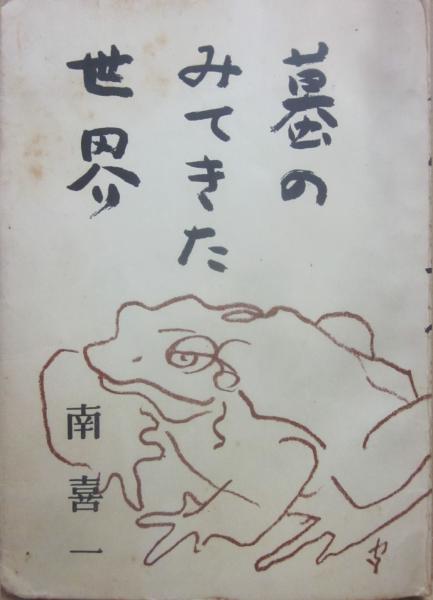 蟇の
みてきた
世界
南喜一